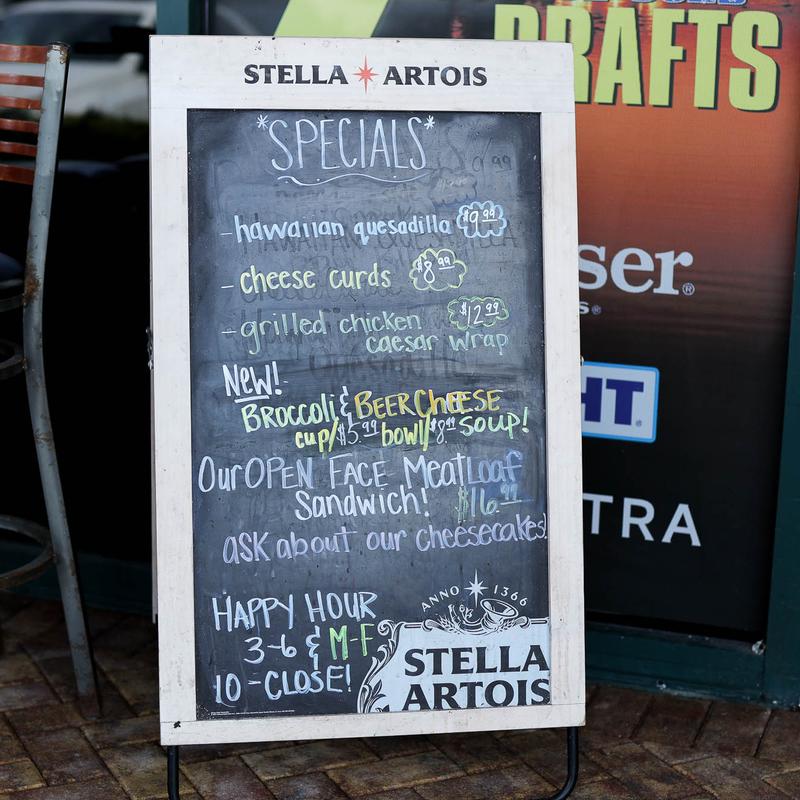 DRAFTS
STELLA ARTOIS
*SPECIALS*
- hawaiian quesadilla $9.99
- cheese curds $8.99
- grilled chicken $12.99
caesar wrap
NEW!
BROCCOLI & BEER CHEESE
cup/$5.99 bowl/$8.99 SOUP!
Our OPEN FACE MeatLoaf
Sandwich! $16.99
ASK about our cheesecakes!
HAPPY HOUR
3-6 & M-F
10 - CLOSE!
ANNO 1366
STELLA
ARTOIS
ser®
HT
TRA